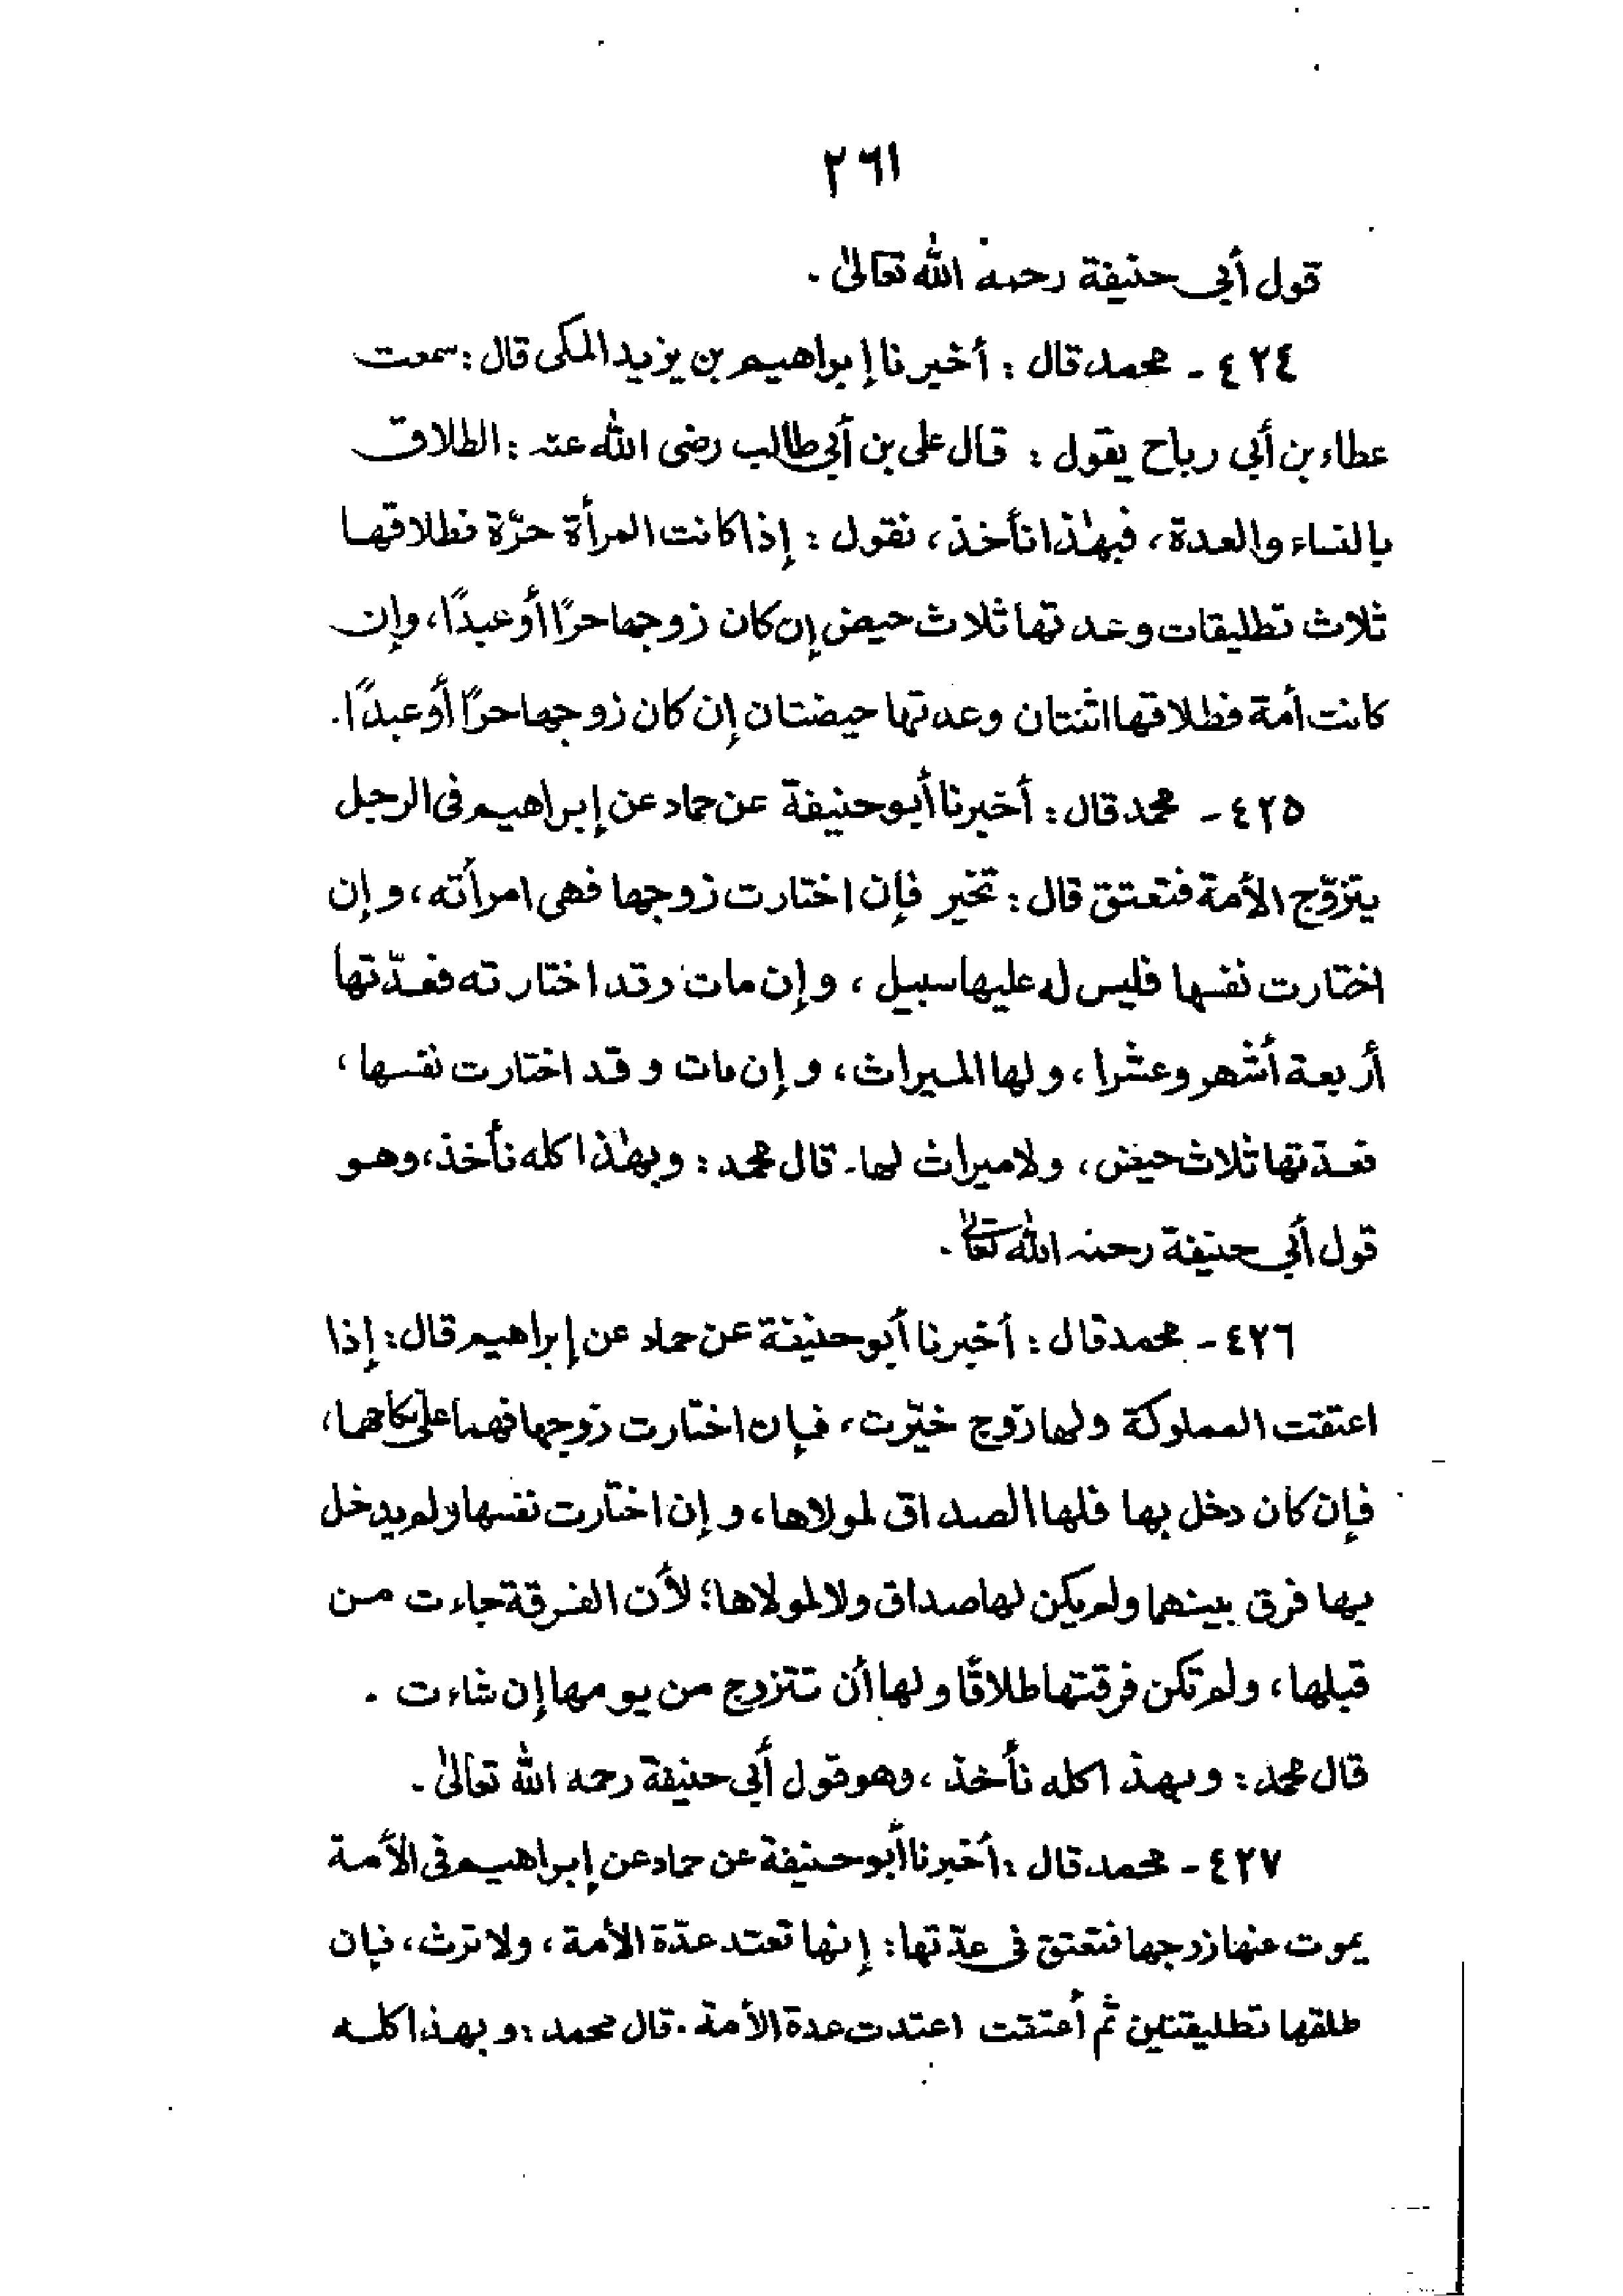 ٢٦١
قول أبي حنيفة رحمه الله تعالىٰ .
٤٢٤ - محمد قال : أخبرنا إبراهيم بن يزيد المكي قال : سمعت
عطاء بن أبي رباح يقول : قال علي بن أبي طالب رضى الله عنه : الطلاق
بالنساء والعدة ، فبهٰذا نأخذ ، نقول : إذا كانت المرأة حرّة فطلاقها
ثلاث تطليقات وعدتها ثلاث حيض إن كان زوجها حرًا أو عبدًا ، وإن
كانت أمة فطلاقها اثنتان وعدتها حيضتان إن كان زوجها حرًا أو عبدًا .
٤٢٥ - محمد قال : أخبرنا أبو حنيفة عن حماد عن إبراهيم فى الرجل
يتزوّج الأمة فتعتق قال : تخير فإن اختارت زوجها فهى امرأته ، وإن
اختارت نفسها فليس له عليها سبيل ، وإن مات وقد اختارته فعدّتها
أربعة أشهر وعشرا ، ولها الميراث ، وإن مات وقد اختارت نفسها ،
فعدّتها ثلاث حيض ، ولا ميراث لها . قال محمد : وبهٰذا كله نأخذ ، وهو
قول أبي حنيفة رحمه الله تعالىٰ .
٤٢٦ - محمد قال : أخبرنا أبو حنيفة عن حماد عن إبراهيم قال : إذا
اعتقت المملوكة ولها زوج خيّرت ، فإن اختارت زوجها فهما على نكاحهما ،
فإن كان دخل بها فلها الصداق لمولاها ، وإن اختارت نفسها ولم يدخل
بها فرق بينهما ولم يكن لها صداق ولا لمولاها ؛ لأن الفرقة جاءت من
قبلها ، ولم تكن فرقتها طلاقًا ولها أن تتزوج من يومها إن شاءت .
قال محمد : وبهذا كله نأخذ ، وهو قول أبي حنيفة رحمه الله تعالىٰ .
٤٢٧ - محمد قال : أخبرنا أبو حنيفة عن حماد عن إبراهيم فى الأمة
يموت عنها زوجها فتعتق فى عدّتها : إنها تعتد عدّة الأمة ، ولا ترث ، فإن
طلقها تطليقتين ثم أعتقت اعتدت عدة الأمة . قال محمد : وبهذا كله